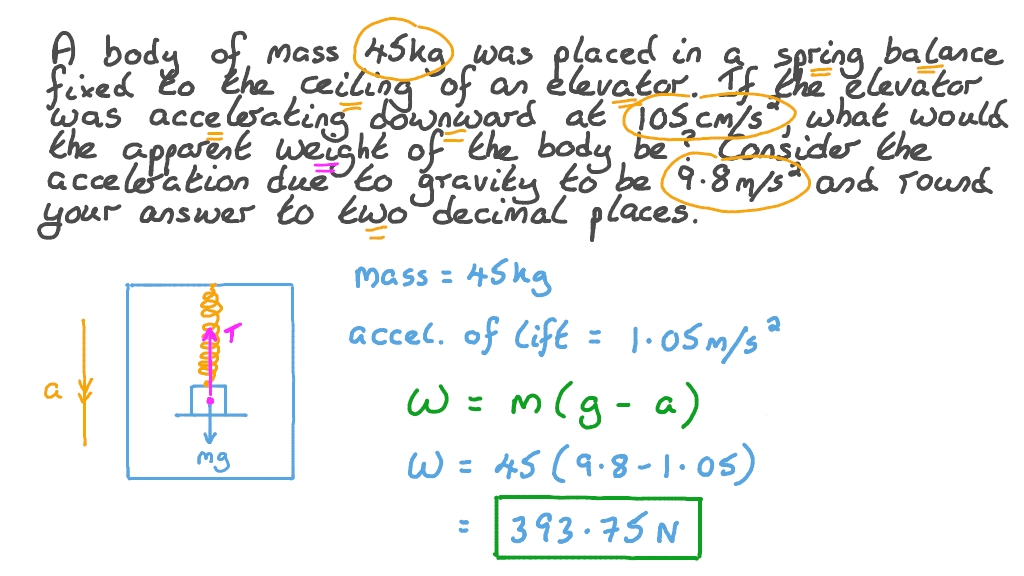 A body of mass 45kg was placed in a spring balance
fixed to the ceiling of an elevator. If the elevator
was accelerating downward at 105 cm/s², what would
the apparent weight of the body be? Consider the
acceleration due to gravity to be 9.8 m/s² and round
your answer to two decimal places.
mass = 45kg
accel. of lift = 1.05 m/s²
T
a
mg
W = m(g - a)
W = 45(9.8 - 1.05)
= 393.75 N